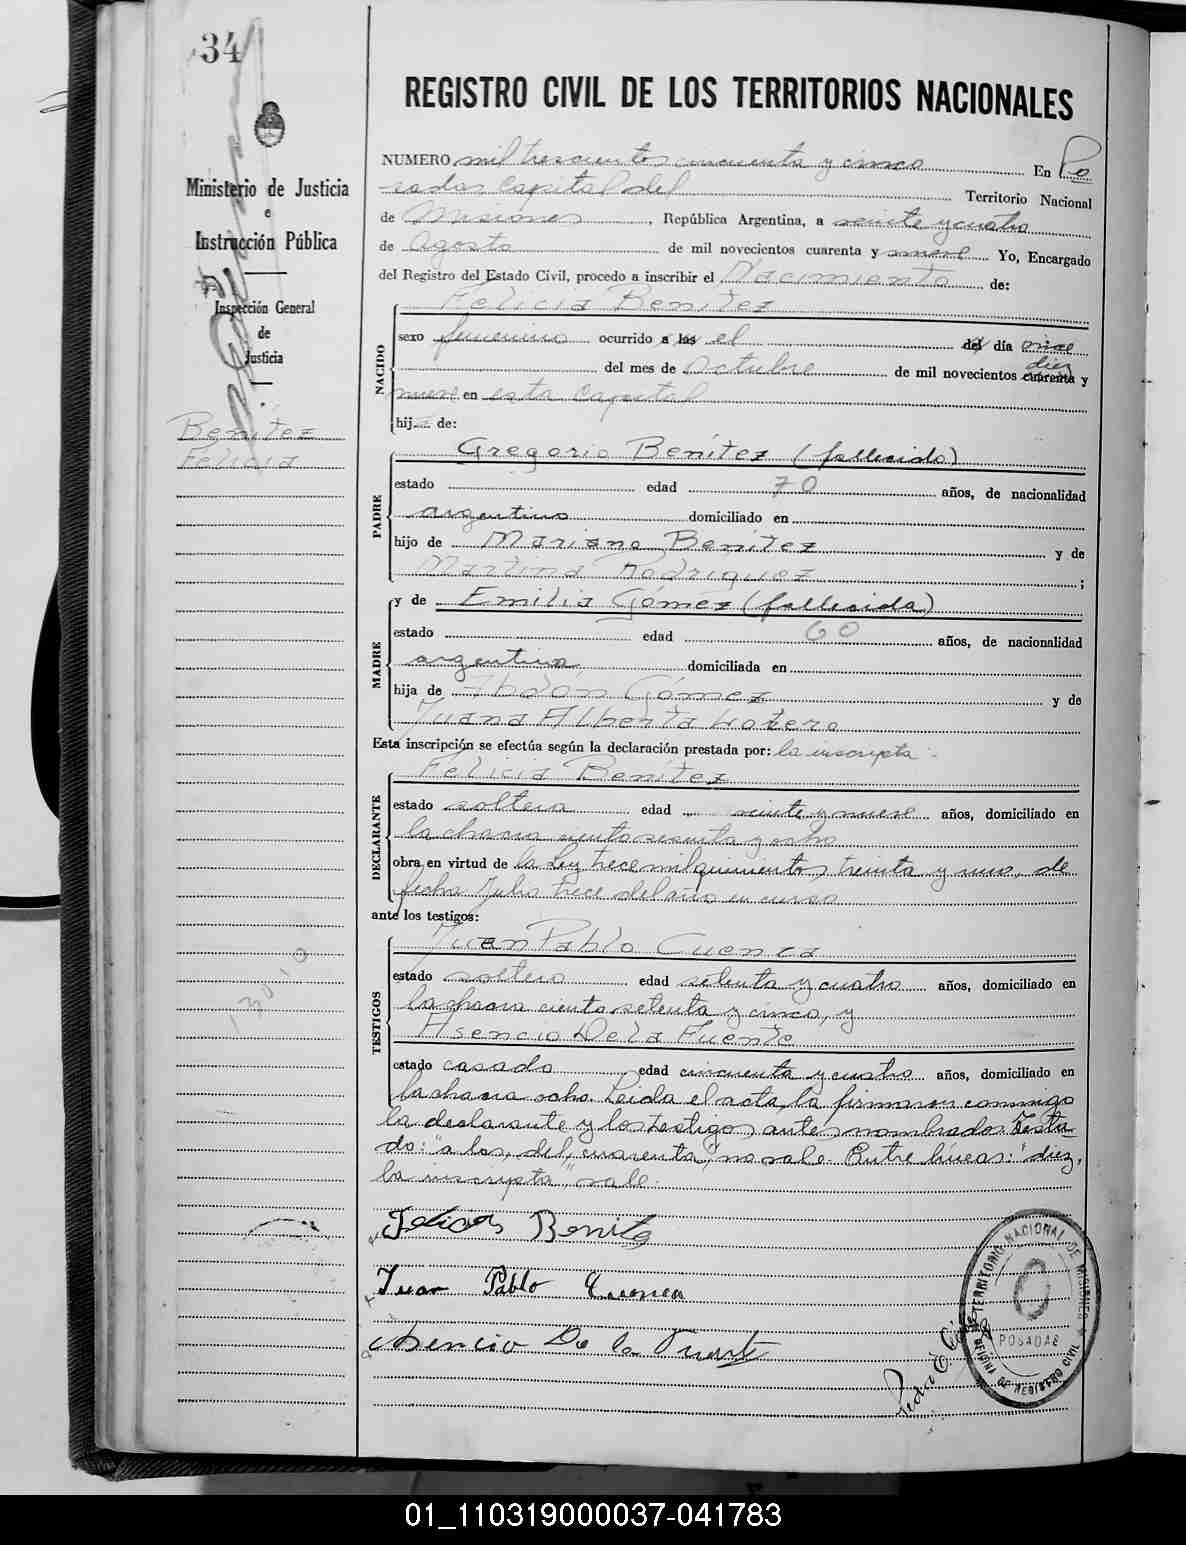 34
REGISTRO CIVIL DE LOS TERRITORIOS NACIONALES
Ministerio de Justicia
e
Instrucción Pública
Inspección General
de
Justicia
Benítez
Felicia
NUMERO mil trescientos cincuenta y cinco En Po
sadas Capital del Territorio Nacional
de Misiones, República Argentina, a veinte y cuatro
de Agosto de mil novecientos cuarenta y nueve Yo, Encargado
del Registro del Estado Civil, procedo a inscribir el Nacimiento de:
NACIDO
Felicia Benítez
sexo femenino ocurrido a las el del día once
del mes de Octubre de mil novecientos cuarenta diez y
nueve en esta Capital
hij de:
PADRE
Gregorio Benítez (fallecido)
estado edad 70 años, de nacionalidad
argentino domiciliado en
hijo de Mariano Benítez y de
Martina Rodríguez ;
MADRE
y de Emilia Gómez (fallecida)
estado edad 60 años, de nacionalidad
argentina domiciliada en
hija de Abdón Gómez y de
Juana Alberta Lotero
Esta inscripción se efectúa según la declaración prestada por: la inscripta
DECLARANTE
Felicia Benítez
estado soltera edad veinte y nueve años, domiciliado en
la chacra ciento sesenta y ocho
obra en virtud de la Ley trece mil quinientos treinta y uno, de
fecha Julio trece del año en curso
ante los testigos:
TESTIGOS
Juan Pablo Cuenca
estado soltero edad setenta y cuatro años, domiciliado en
la chacra ciento setenta y cinco, y
Asencio De la Fuente
estado casado edad cincuenta y cuatro años, domiciliado en
la chacra ocho. Leida el acta, la firmaron conmigo
la declarante y los testigos antes nombrados. Testa-
do: "a los, del, cuarenta", no vale. Entre lineas: "diez,
la inscripta", vale.
Felicia Benitez
Juan Pablo Cuenca
Asencio De la Fuente
TERRITORIO NACIONAL DE MISIONES
POSADAS
OFICINA DE REGISTRO CIVIL
01_110319000037-041783